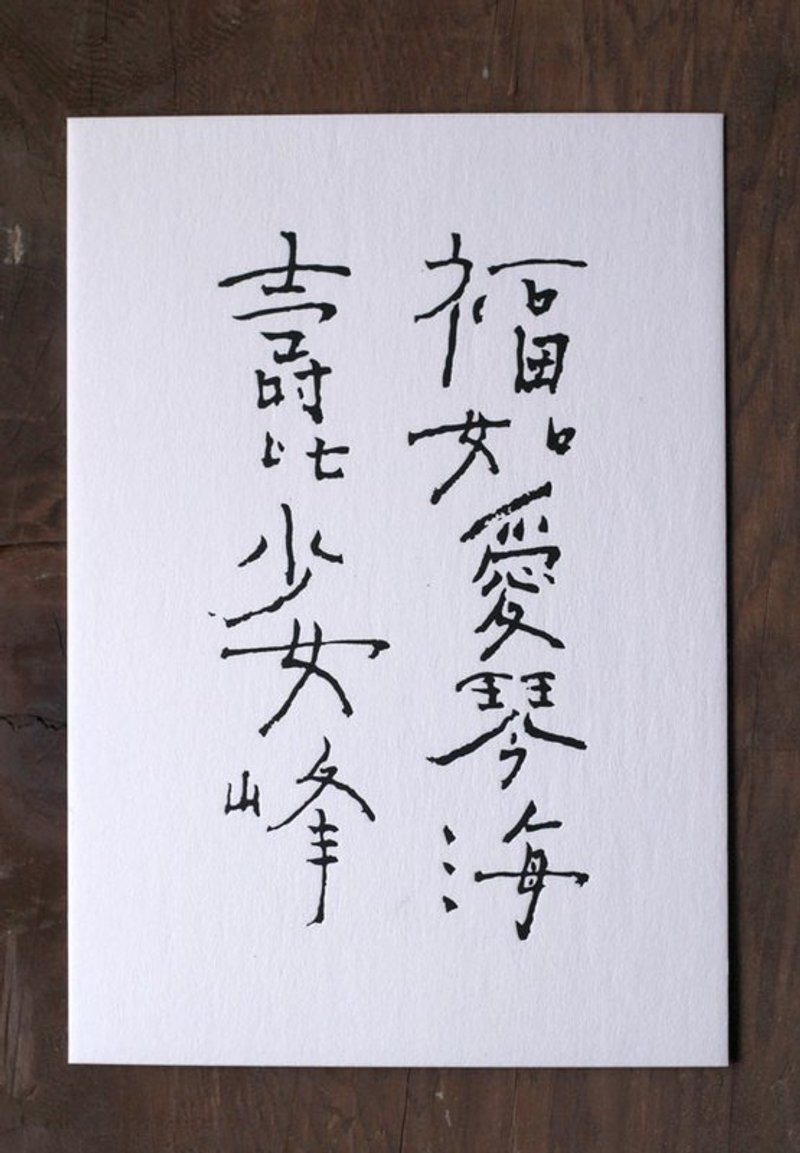 福如愛琴海
壽比少女峰